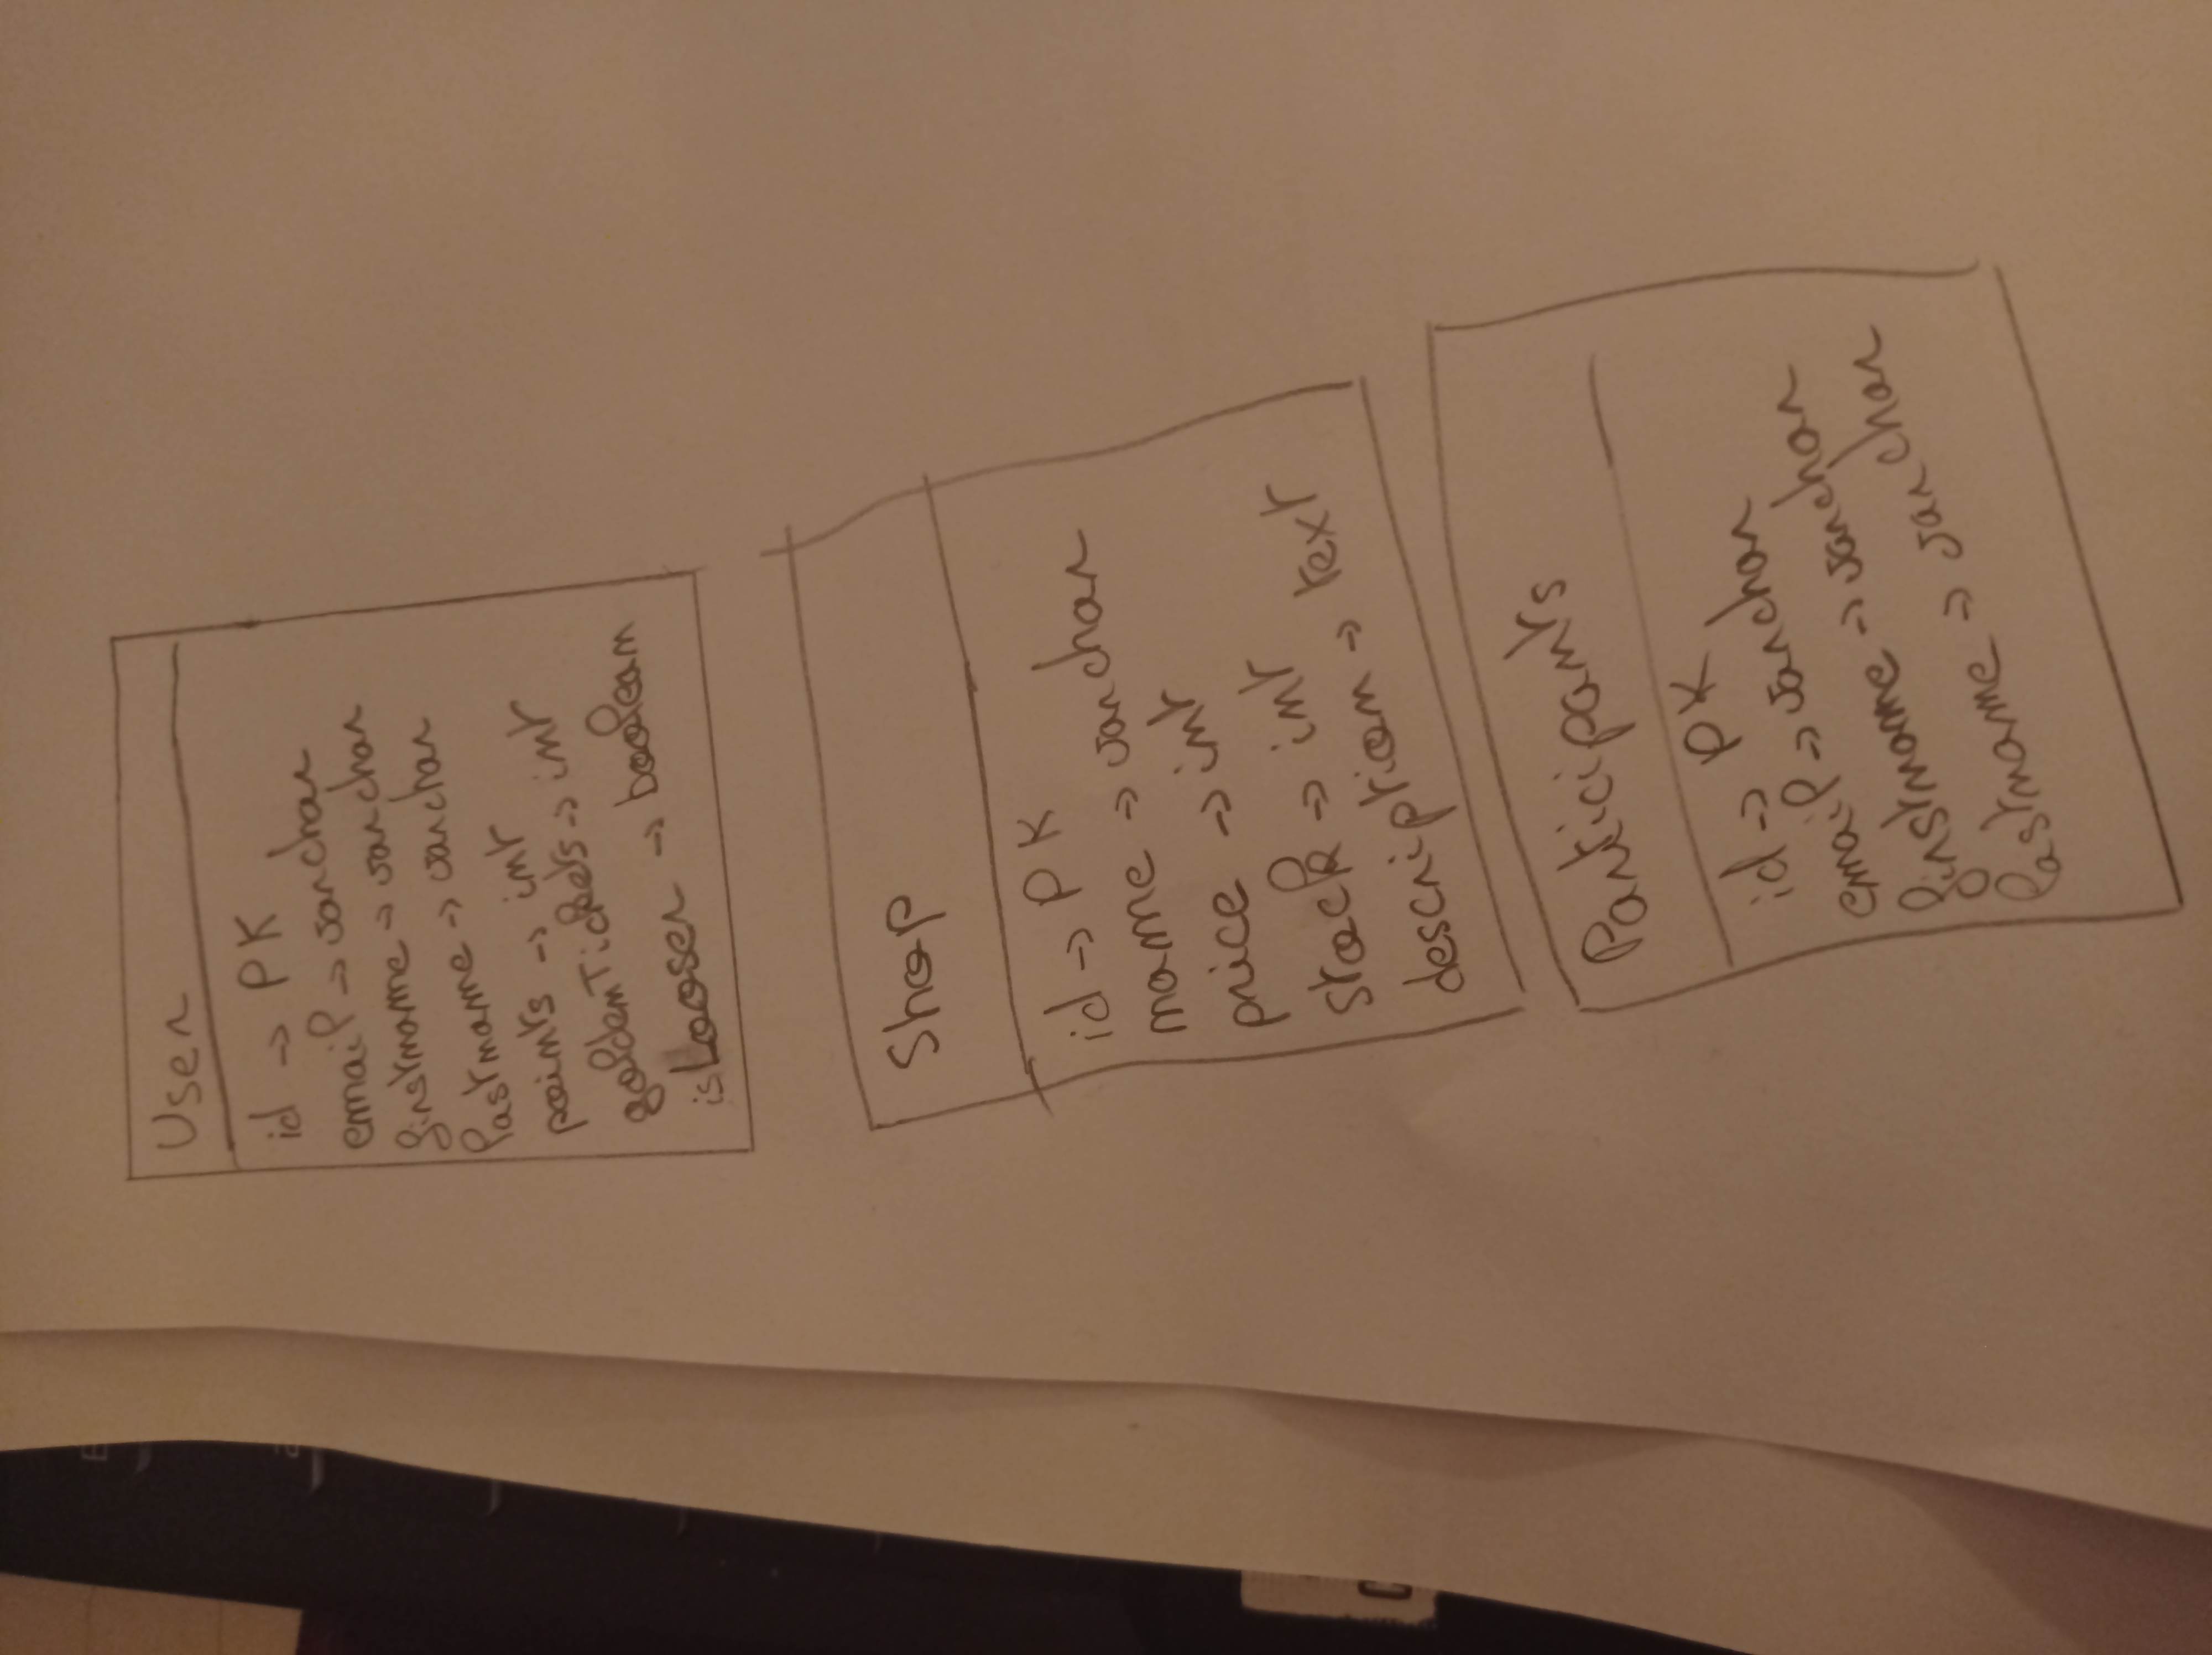 User
id -> PK
email -> varchar
firstname -> varchar
lastname -> varchar
points -> int
goldenTickets -> int
isLooser -> boolean
Shop
id -> PK
name -> varchar
price -> int
stock -> int
description -> text
Participants
id -> PK
email -> varchar
firstname -> varchar
lastname -> varchar